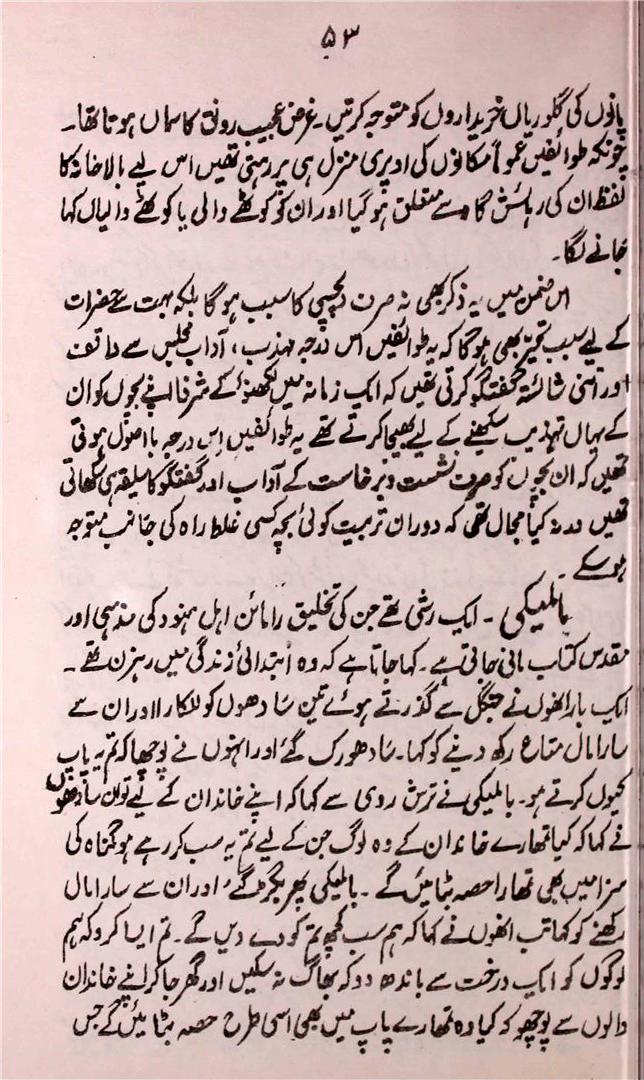 ۵۳
پانوں کی گلوریاں خریداروں کو متوجہ کرتیں۔ غرض عجیب رونق کا سماں ہوتا تھا۔
چونکہ طوائفیں عموماً مکانوں کی اوپری منزل ہی پر رہتی تھیں اس لیے بالا خانہ کا
لفظ ان کی رہائش گاہ سے متعلق ہو گیا اور ان کو کوٹھے والی یا کوٹھے والیاں کہا
جانے لگا۔
اس ضمن میں یہ ذکر بھی نہ صرف دلچسپی کا سبب ہو گا بلکہ بہت سے حضرات
کے لیے سبب تحیّر بھی ہوگا کہ یہ طوائفیں اس درجہ مہذب، آداب مجلس سے واقف
اور اتنی شائستہ گفتگو کرتی تھیں کہ ایک زمانہ میں لکھنؤ کے شرفا اپنے بچوں کو ان
کے یہاں تہذیب سیکھنے کے لیے بھیجا کرتے تھے یہ طوائفیں اس درجہ با اصول ہوتی
تھیں کہ ان بچوں کو صرف نشست و برخاست کے آداب اور گفتگو کا سلیقہ ہی سکھاتی
تھیں ورنہ کیا مجال تھی کہ دوران تربیت کوئی بچہ کسی غلط راہ کی جانب متوجہ
ہو سکے۔
بالمیکی ۔ ایک رشی تھے جن کی تخلیق رامائن اہل ہنود کی مذہبی اور
مقدس کتاب مانی جاتی ہے۔ کہا جاتا ہے کہ وہ ابتدائی زندگی میں رہزن تھے۔
ایک بار انھوں نے جنگل سے گذرتے ہوئے تین سادھوں کو للکارا اور ان سے
سارا مال متاع رکھ دینے کو کہا۔ سادھو رک گئے اور انہوں نے پوچھا کہ تم یہ پاپ
کیوں کرتے ہو۔ بالمیکی نے ترش روی سے کہا کہ اپنے خاندان کے لیے تو ان سادھوں
نے کہا کہ کیا تمھارے خاندان کے وہ لوگ جن کے لیے تم یہ سب کر رہے ہو گناہ کی
سزا میں بھی تمھارا حصہ بٹائیں گے۔ بالمیکی پھر بگڑ گئے اور ان سے سارا مال
رکھنے کو کہا تب انھوں نے کہا کہ ہم سب کچھ تم کو دے دیں گے۔ تم ایسا کرو کہ ہم
لوگوں کو ایک درخت سے باندھ دو کہ بھاگ نہ سکیں اور گھر جا کر اپنے خاندان
والوں سے پوچھو کہ کیا وہ تمھارے پاپ میں بھی اسی طرح حصہ بٹائیں گے جس